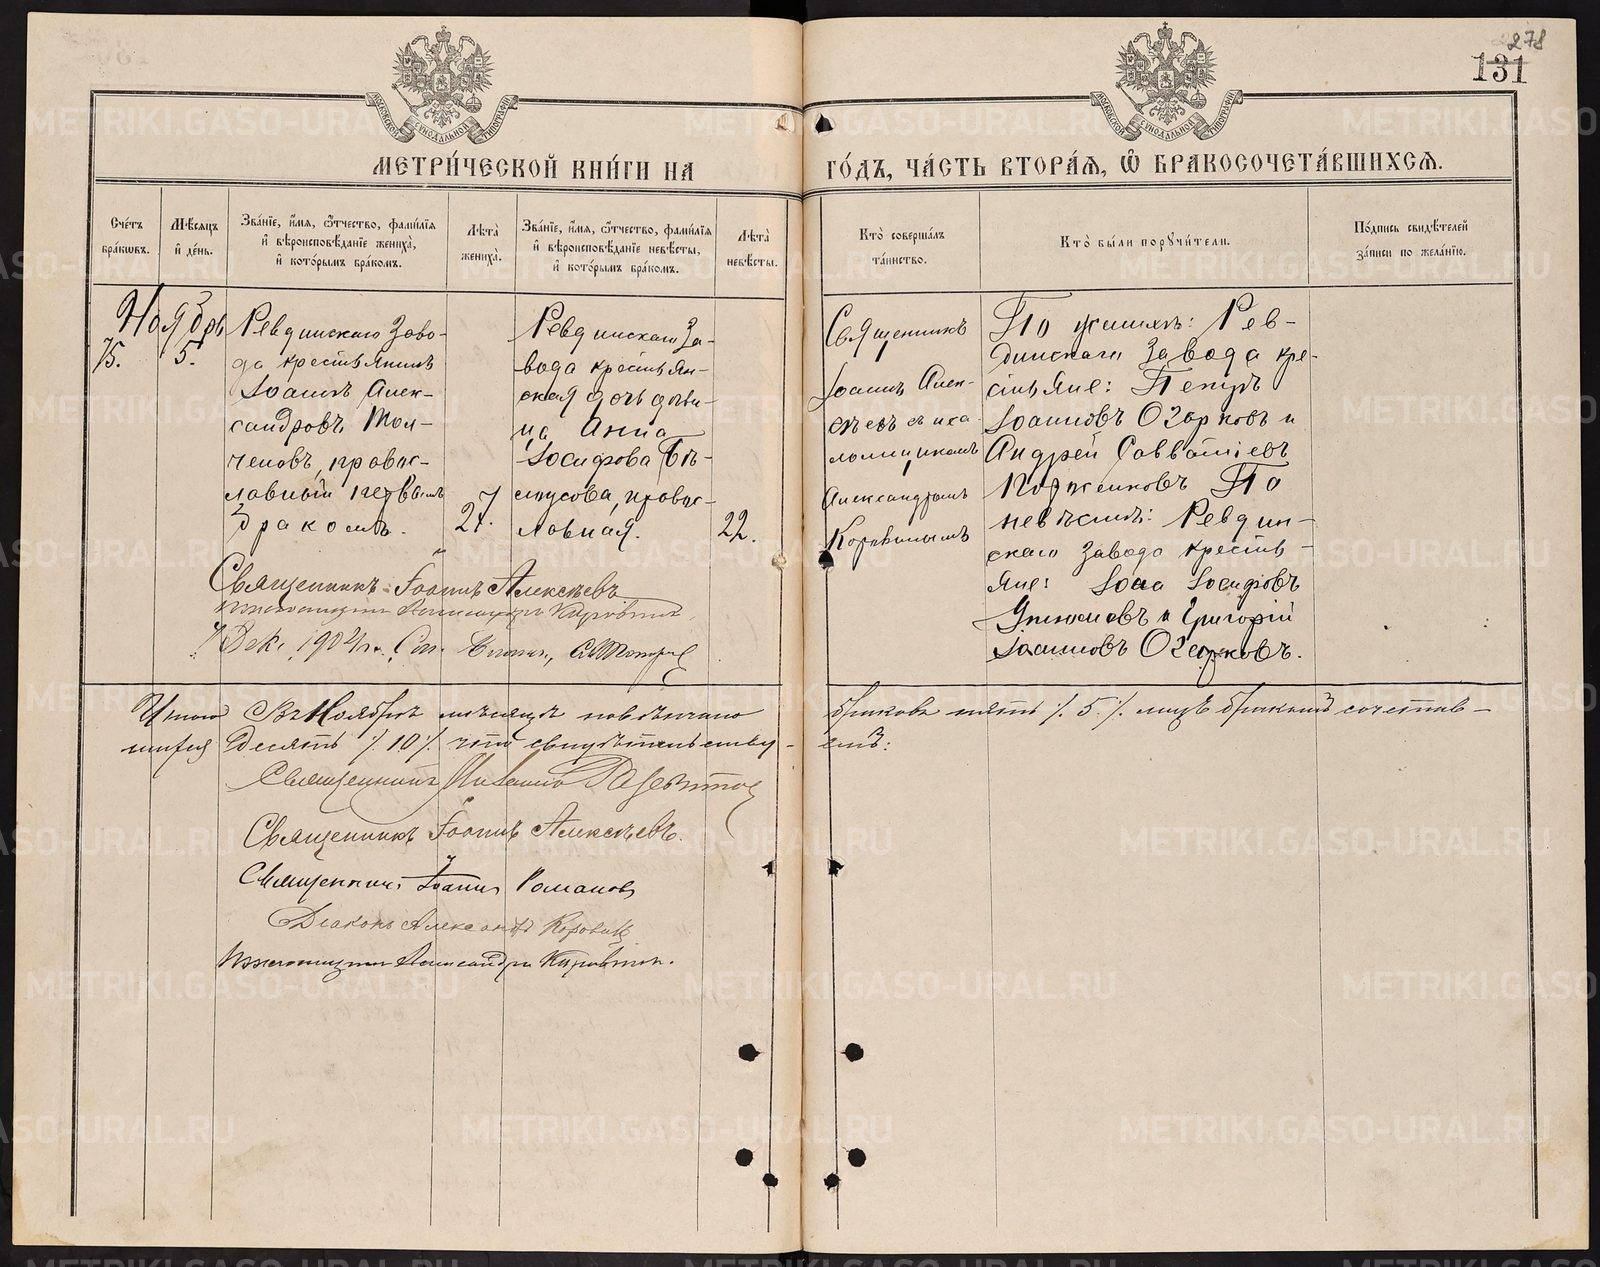 278
131
МЕТРИ́ЧЕСКОЙ КНИ́ГИ НА ГО́ДЪ, ЧА́СТЬ ВТОРА́Я, Ѽ БРАКОСОЧЕТА́ВШИХСЯ.
Сче́тъ бра́ковъ.
Мѣ́сяцъ и́ де́нь.
Зва́нїе, и́мя, ѻ́тчество, фами́лїя и́ вѣроисповѣ́данїе жениха̀, и́ кото́рымъ бра́комъ.
Лѣта̀ жениха̀.
Зва́нїе, и́мя, ѻ́тчество, фами́лїя и́ вѣроисповѣ́данїе невѣ́сты, и́ кото́рымъ бра́комъ.
Лѣта̀ невѣ́сты.
Кто̀ соверша́лъ та́инство.
Кто̀ бы́ли порꙋчи́тели.
По́дпись свидѣ́телей за́писи по жела́нїю.
Ноябрь
75.
5.
Ревдинскаго Заво-
да крестьянинъ
Іоаннъ Алек-
сандровъ Тол-
, правос-
лавный первымъ
бракомъ.
27.
Ревдинскаго За-
вода крестьян-
ская дочь дѣви-
ца Анна
Іосифова Бѣ-
лоусова, правос-
лавная.
22.
Священникъ
Іоаннъ Алек-
сѣевъ съ пса-
ломщикомъ
Александромъ
Коровинымъ
По женихѣ: Рев-
динскаго Завода кре-
стьяне: Петръ
Іоанновъ Озорковъ и
Андрей Савватіевъ
По
невѣстѣ: Ревдин-
скаго Завода кресть-
яне: Іосифовъ
и Григорій
Іоанновъ Озорковъ.
Священникъ Іоаннъ Алексѣевъ
Псаломщикъ Александръ Коровинъ.
7 Дек. 1904 г.
Итого Въ Ноябрѣ мѣсяцѣ повѣнчано браковъ пять /. 5. /. лицъ бракомъ сочетав-
шихся Десять /. 10 /. что свидѣтельству-емъ:
Священникъ
Священникъ Іоаннъ Алексѣевъ.
Священникъ Іоаннъ Романовъ
Діаконъ Александръ Коровинъ
Псаломщикъ Александръ Коровинъ.
METRIKI.GASO-URAL.RU